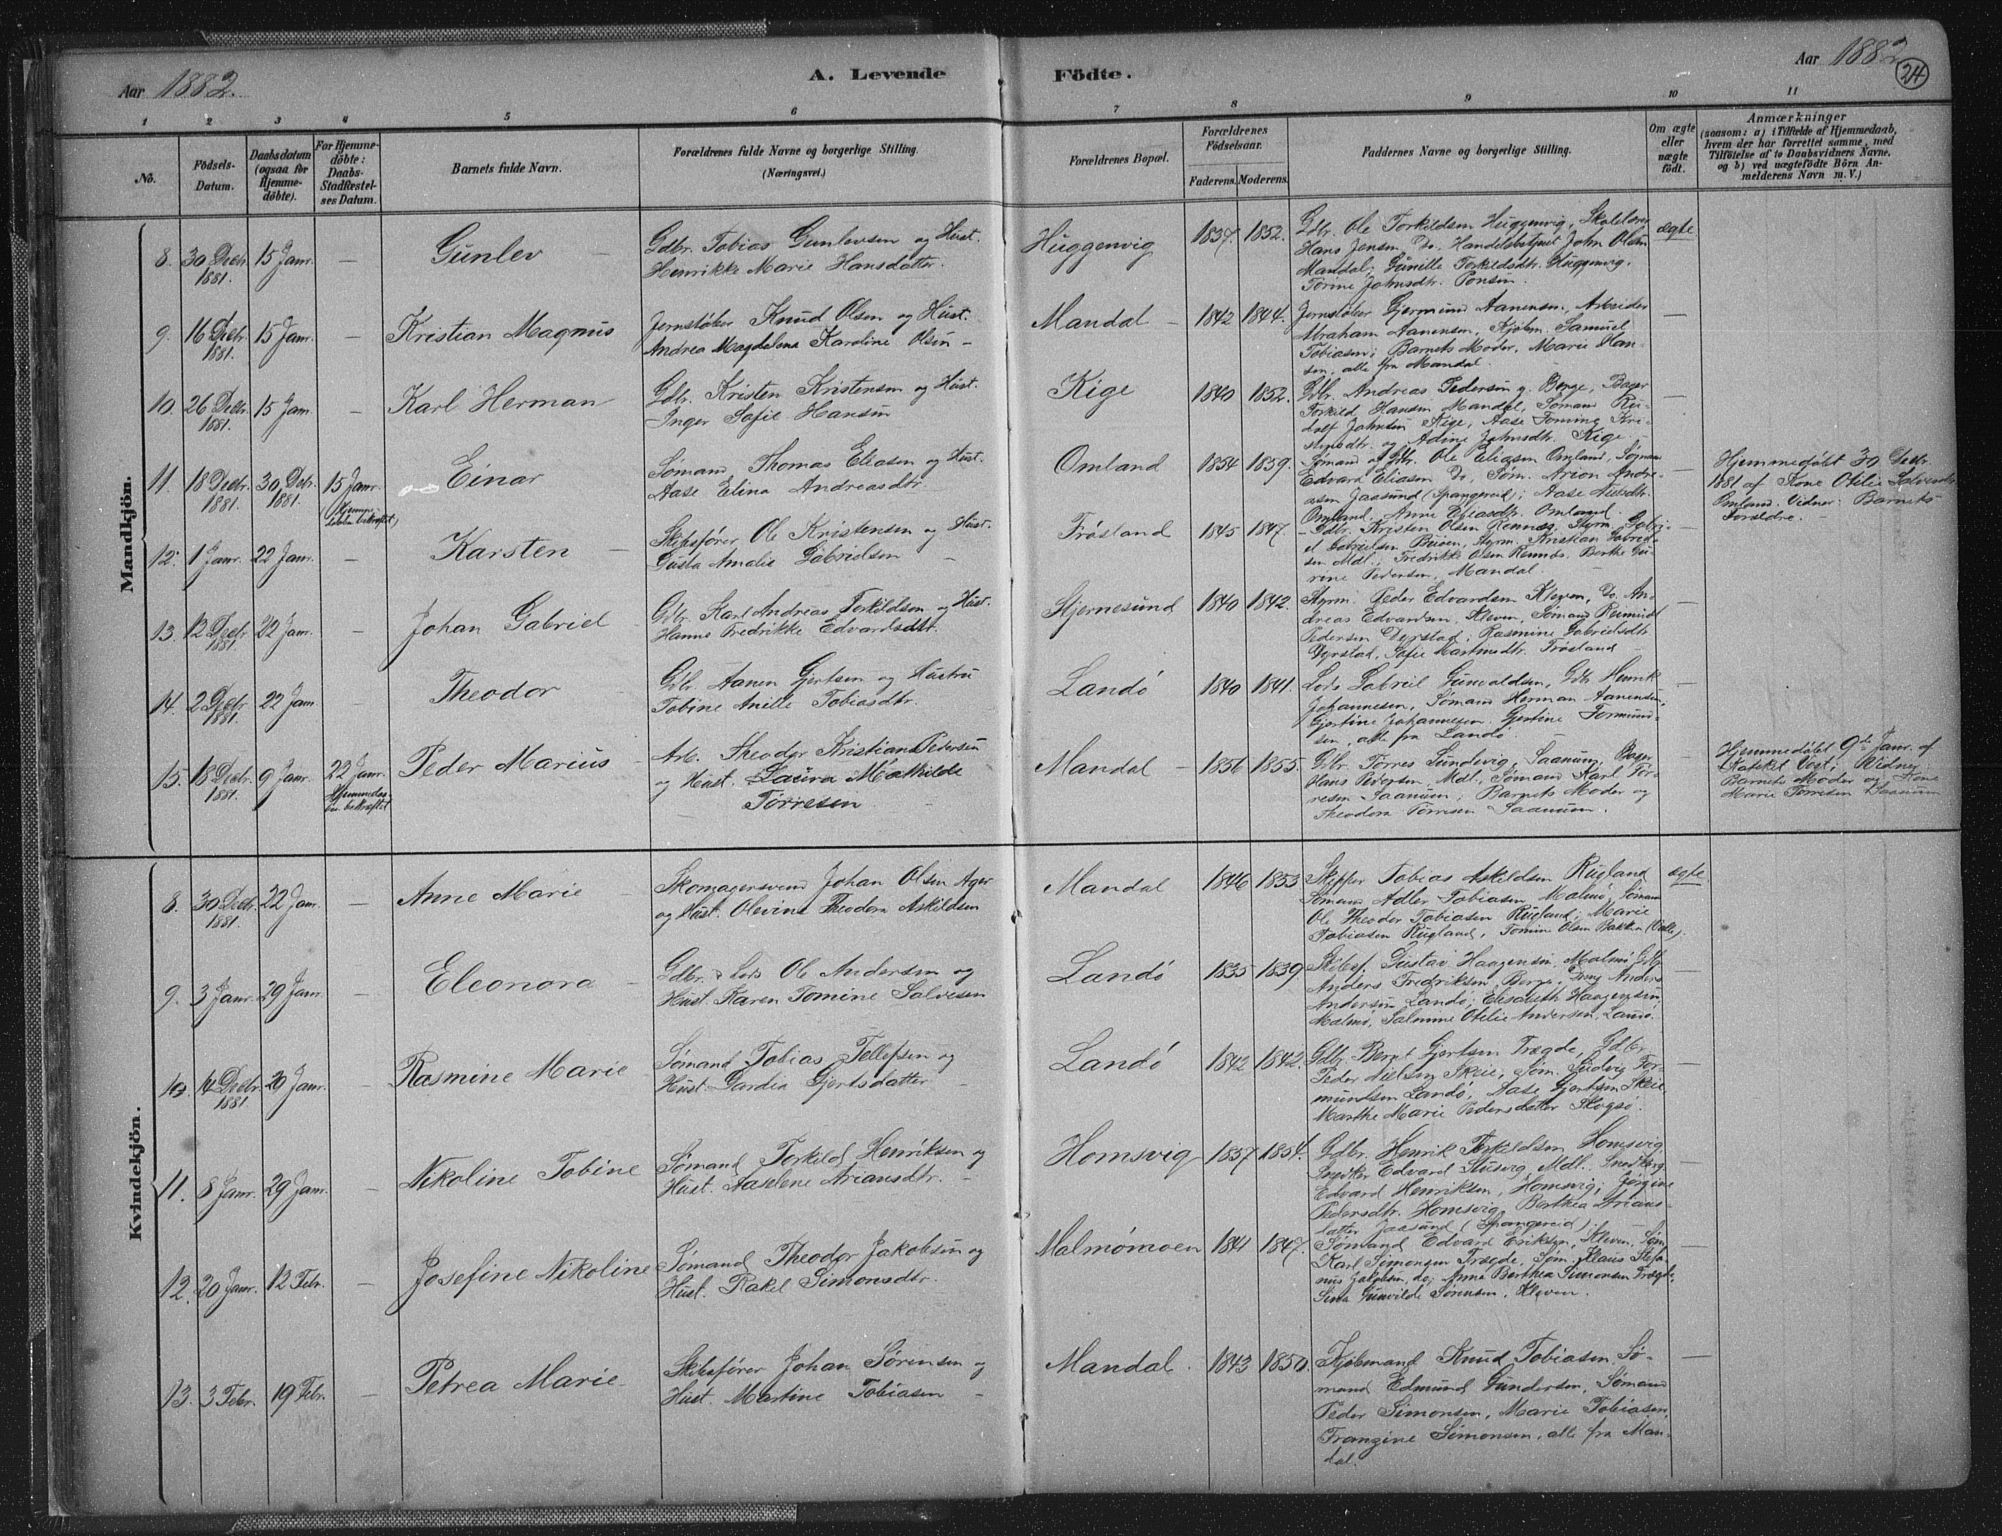 Aar 1882. A. Levende Födte. Aar 1882
24
1 2 3 4 5 6 7 8 9 10 11
No.
Födsels-Datum.
Daabsdatum (ogsaa for Hjemmedöbte).
For Hjemmedöbte: Daabs-Stadfæstelses Datum.
Barnets fulde Navn.
Forældrenes fulde Navne og borgerlige Stilling.
(Næringsvei.)
Forældrenes Bopæl.
Forældrenes Födselsaar.
Faderens. Moderens.
Faddernes Navne og borgerlige Stilling.
Om ægte eller uægte födt.
Anmærkninger
(saasom: a) i Tilfælde af Hjemmedaab, hvem der har forrettet samme, med Tilföielse af to Daabsvidners Navne, og b) ved uægtefödte Börn Anmelderens Navn m. V.)
Mandkjön.
8. 30 Decbr. 1881. 15 Janr. — Gunlev — Gdbr. Tobias Gunlevsen og Hust.
Henrikke Marie Hansdatter.
Huggenvig 1837. 1852. Gdbr. Ole Torkildsen Huggenvig, Skolelærer
Hans Jensen, Do. Handelsbetjent John Olsen
Mandal, Gunille Torkildsdtr. Huggenvig,
Tomine Johnsdtr.
ægte
9. 16 Decbr. 1881. 15 Janr. — Kristian Magnus Jernstøber Knud Olsen og Hust.
Andrea Magdalena Karoline Olsen —
Mandal — 1842 1844. Jernstøber Gjermund Aanensen, Arbeider
Abraham Aanensen, Kjøbm. Samuel
Tobiasen; Barnets Moder, Marie Han-
sen, alle fra Mandal.
—
10. 26 Decbr. 1881. 15 Janr. — Karl Herman Gdbr. Kristen Kristensen og Hust.
Inger Sofie Hansen
Kige 1840 1852. Gdbr. Andreas Pedersen Berge, Bager
Torkild Hansen Mandal, Sømand Ru-
dolf Johnsen Kige, Aase Tomine Kri-
stensdtr. og Adine Johnsdtr. Kige —
—
11. 18 Decbr. 1881. 30 Decbr. 1881. 15 Janr. Einar Sømand Thomas Eliasen og Hust.
Aase Elina Andreasdtr.
Omland 1854 1859. Gdbr. Ole Eliasen Omland, Sømand
Edvard Eliasen Do, Søm. Arion Andre-
asen Jaasund (Spangereid); Aase Nilsdtr.
Omland, Anne Eliasdtr. Omland.
—
Hjemmedøbt 30 Decbr.
1881 af Kone Otilie
Omland. Vidner: Barnets
Forældre.
12. 1 Janr. 22 Janr. — Karsten — Skibsfører Ole Kristensen og Hust.
Gusta Amalie Gabrielsen —
Frøsland 1845 1847. Gdbr. Kristen Olsen Rennæs, Styrm. Gabri-
el Gabrielsen Buøen, Styrm. Kristian Gabriel-
sen Mdl.; Fredrikke Olsen Rennæs, Berthe Gu-
rine Pedersen, Mandal.
—
13. 12 Decbr. 1881. 22 Janr. — Johan Gabriel — Gdbr. Karl Andreas Torkildsen og Hust.
Hanne Fredrikke Edvardsdtr.
Stjernesund 1840 1842. Styrm. Peder Edvardsen Kleven, Do. An-
dreas Edvardsen, Kleven, Sømand
Pedersen Dyrstad; Rasmine Gabrielsdtr.
Dyrstad, Sofie Martinedtr. Frøsland —
—
14. 2 Decbr. 1881. 22 Janr. — Theodor — Gdbr. Aanen Gjertsen og Hustru
Tobine Anille Tobiasdtr.
Landö 1840 1841. Lods Gabriel Gunvaldsen, Gdbr. Henrik
Johannesen, Sømand Herman Aanensen,
Gjertine Johannesen. Gjertine Tormund-
sen, alle fra Landö.
—
15. 18 Decbr. 1881. 9 Janr. 22 Janr. Peder Marius — Arb. Theodor Kristian Pedersen
og Hust. Laura Mathilde
Törresen
Mandal — 1856 1855. Gdbr. Torres Sundsvig, Saanum, Bager
Hans Pedersen Mdl. Sømand Karl Tør-
resen Saanum; Barnets Moder og
Theodora Törresen Saanum.
—
Hjemmedøbt 9de Janr. af
Kateket Vogt; Vidner
Barnets Moder og
Marie Törresen Saanum
Kvindekjön.
8. 30 Decbr. 1881. 22 Janr. — Anne Marie — Skomagersvend Johan Olsen Ager
og Hust. Olevine Theodora Askildsen
Mandal 1846 1853 Skipper Tobias Askildsen Rugland
Sømand Adler Tobiasen Malmö, Sømand
Ole Theodor Tobiasen Rugland; Marie
Tobiasen Rugland, Tomine Olsen Bakken (Valle).
ægte
9. 3 Janr. 29 Janr. — Eleonora — Gdbr. & Lods Ole Andersen og
Hust. Karen Tomine Salvesen
Landö 1835 1839. Skibsf. Gustav Haagensen Malmö, Gdbr.
Anders Fredriksen Berge, Ung. Anders
Andersen Landö; Elisabeth Haagensen
Malmö, Salmine Otilie Andersen, Landö.
—
10. 14 Decbr. 1881 20 Janr. — Rasmine Marie Sømand Tobias Tellefsen og
Hust. Gardia Gjertsdatter. —
Landö 1842 1842. Gdbr. Bernt Gjertsen Trægde, Gdbr.
Peder Nielsen Skeie, Søm. Ludvig Tor-
mundsen Landö; Aase Gjertsen Skeie
Marthe Marie Pedersdatter Skogsö.
—
11. 8 Janr. 29 Janr. — Nikoline Tobine Sømand Torkild Henriksen og
Hust. Aaslene Ariansdtr. —
Homsvig 1857 1854. Gdbr. Henrik Torkildsen Homsvig,
Snedker Edvard Stusvig Mdl. Snedker
Edvard Henriksen, Homsvig; Jørgine
Pedersdtr. Homsvig, Berthea Arians-
datter Jaasund (Spangereid).
—
12. 20 Janr. 12 Febr. — Josefine Nikoline Sømand Theodor Jakobsen og
Hust. Rakel Simonsdtr.
Malmömoen 1841 1847. Sømand Edvard Eriksen, Kleven, Søm.
Karl Simonsen Trægde, Søm. Klaus Stefa-
nus Jakobsen, do; Anna Berthea Simonsen Trægde,
Sina Gunvilde Sørensen, Kleven.
—
13. 3 Febr. 19 Febr. — Petrea Marie — Skibsfører Johan Sörensen og
Hust. Martine Tobiasen —
Mandal. 1843 1850. Kjøbmand Knud Tobiasen, Sø-
mand Edmund Gundersen, Sømand
Peder Simonsen, Marie Tobiasen,
Franzine Simonsen, alle fra Man-
dal.
—